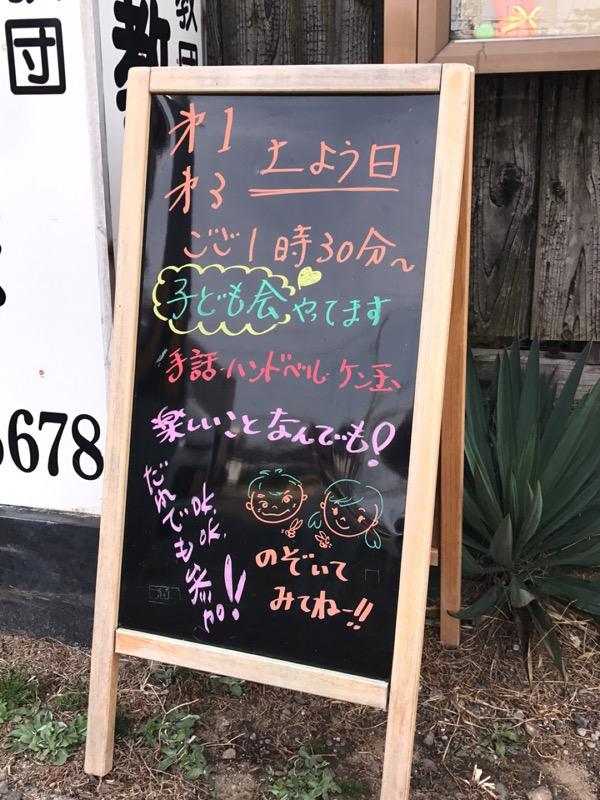 団
教
教団
5678
才1 土よう日
才3
ごご1時30分~
子ども会 やってます
手話・ハンドベル・ケン玉
楽しいことなんでも!
だれでも
OK.
OK.
のぞいて
みてねー!!